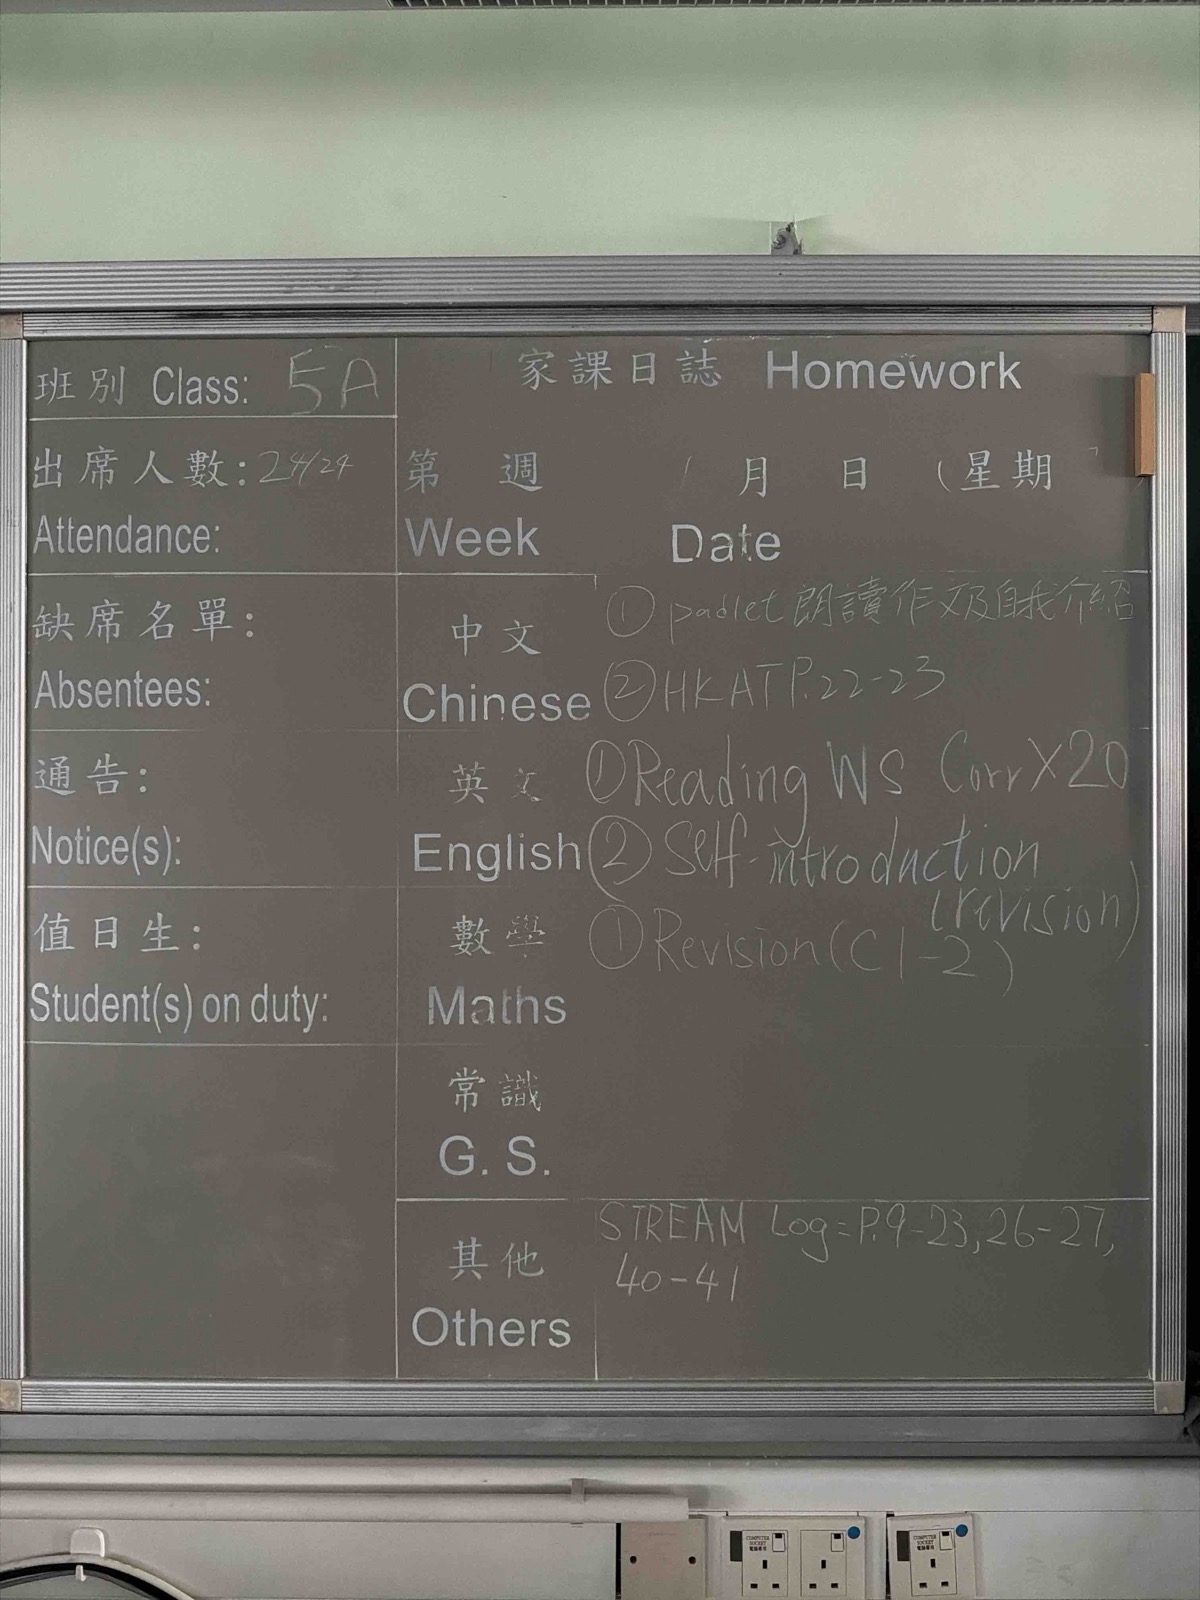 班別 Class: 5A
出席人數: 24/24
Attendance:
缺席名單:
Absentees:
通告:
Notice(s):
值日生:
Student(s) on duty:
家課日誌 Homework
第 週 月 日 (星期
Week Date
中文
Chinese
① padlet 朗讀作文及自我介紹
② HKAT P.22-23
英文
English
① Reading WS Corr X20
② Self-introduction
(revision)
數學
Maths
① Revision (C1-2)
常識
G. S.
其他
Others
STREAM Log = P.9-23, 26-27,
40-41
COMPUTER
SOCKET
電腦專用
COMPUTER
SOCKET
電腦專用